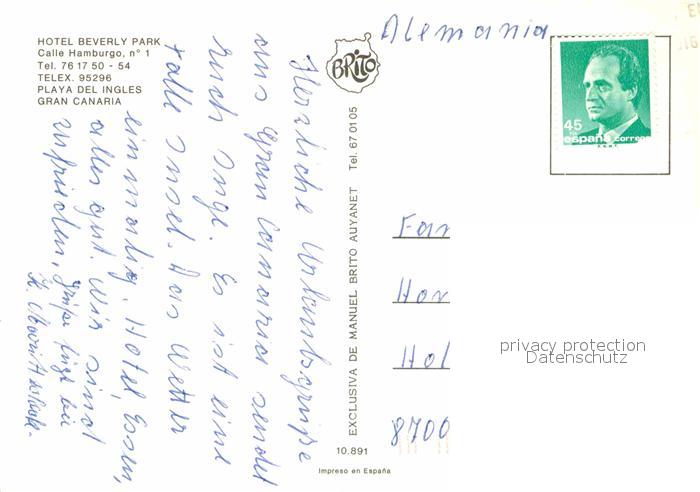 HOTEL BEVERLY PARK
Calle Hamburgo, n° 1
Tel. 76 17 50 - 54
TELEX. 95296
PLAYA DEL INGLES
GRAN CANARIA
BRITO
Alemania
45
españa correos
Herzliche Urlaubsgrüße
aus Gran Canaria sendet
euch Inge. Es ist eine
tolle Insel. Das Wetter
einmalig, Hotel, Essen,
alles gut. Wir sind
zufrieden, Grüße
EXCLUSIVA DE MANUEL BRITO AUYANET Tel. 67 01 05
Fam
Han
Hol
8700
privacy protection
Datenschutz
10.891
Impreso en España